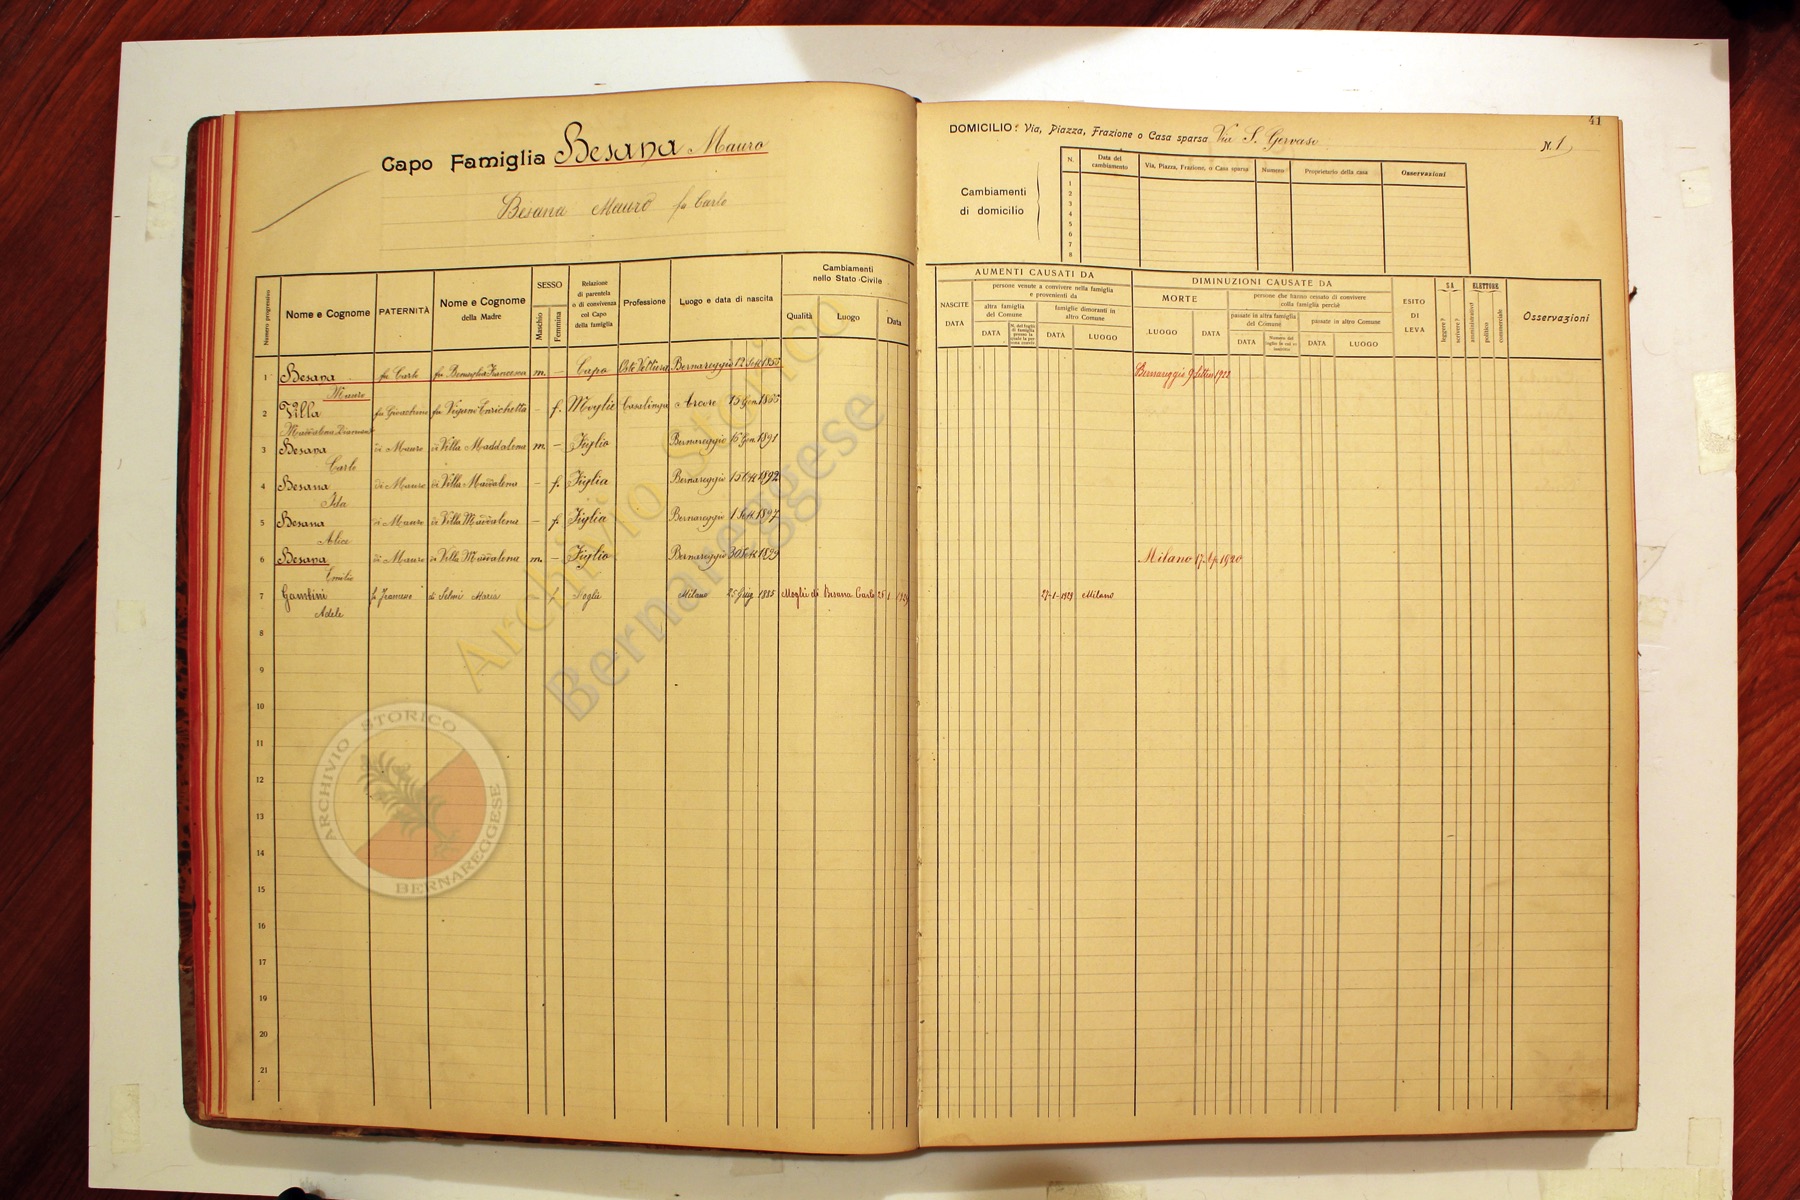 Capo Famiglia Besana Mauro
Besana Mauro fu Carlo
41
DOMICILIO: Via, Piazza, Frazione o Casa sparsa Via S. Gervaso N. 1
Cambiamenti di domicilio
N. Data del cambiamento Via, Piazza, Frazione, o Casa sparsa Numero Proprietario della casa Osservazioni
1
2
3
4
5
6
7
8
Numero progressivo Nome e Cognome PATERNITÀ Nome e Cognome della Madre SESSO Maschio Femmina Relazione di parentela o di convivenza col Capo della famiglia Professione Luogo e data di nascita Cambiamenti nello Stato Civile Qualità Luogo Data
AUMENTI CAUSATI DA
NASCITE DATA
persone venute a convivere nella famiglia e provenienti da
altra famiglia del Comune DATA
famiglie dimoranti in altro Comune DATA LUOGO
DIMINUZIONI CAUSATE DA
MORTE LUOGO DATA
persone che hanno cessato di convivere colla famiglia perciè
passate in altra famiglia del Comune DATA
passate in altro Comune DATA LUOGO
ESITO DI LEVA
SA leggere? scrivere?
ELETTORE amministrativo politico commerciale
Osservazioni
1 Besana Mauro fu Carlo fu Francesca m. – Capo Oste Bernareggio 12 Sett Bernareggio 9 Settem 1922
2 Villa Maddalena fu Gioachino fu Vigani Enrichetta – f. Moglie Casalinga Arcore 15 Gen.
3 Besana Carlo di Mauro di Villa Maddalena m. – Figlio Bernareggio 16 Gen. 1891
4 Besana Ida di Mauro di Villa Maddalena – f. Figlia Bernareggio 15 Ott 1892
5 Besana Alice di Mauro di Villa Maddalena – f. Figlia Bernareggio 1 Sett 1897
6 Besana Emilio di Mauro di Villa Maddalena m. – Figlio Bernareggio 30 Sett 1899 Milano 17 Ap. 1920
7 Gambini Adele fu Francesco di Selmi Maria f Moglie Milano 25 Giug 1885 Moglie di Besana Carlo 1929 27-1-1929 Milano
8
9
10
11
12
13
14
15
16
17
18
19
20
21
Archivio Storico
Bernareggese
ARCHIVIO STORICO
BERNAREGGESE